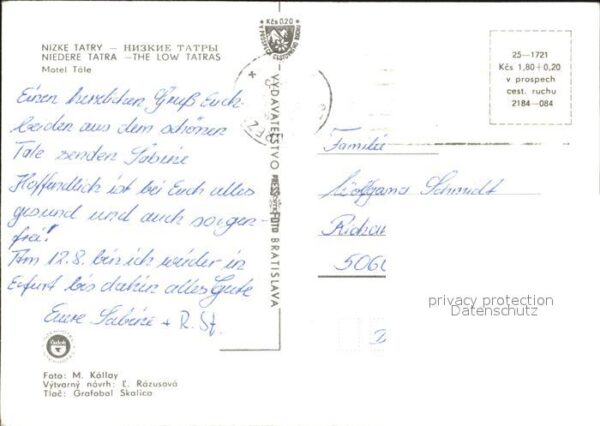 NÍZKE TATRY — НИЗКИЕ ТАТРЫ
NIEDERE TATRA —THE LOW TATRAS
Motel Tále
Einen herzlichen Gruß Euch
beiden aus dem schönen
Tale senden Sabine
Hoffendlich ist bei Euch alles
gesund und auch sorgen-
frei!
Am 12.8. bin ich wieder in
Erfurt bis dahin alles Gute
Eure Sabine + R. St.
Foto: M. Kállay
Výtvarný návrh: Ľ. Rázusová
Tlač: Grafobal Skalica
Kčs 0,20
V PROSPECH CESTOVNÉHO RUCHU
VYDAVATEĽSTVO PRESSFOTO BRATISLAVA
25—1721
Kčs 1,80+0,20
v prospech
cest. ruchu
2184-084
Familie
Wolfgang Schmidt
Richar
5060
D
privacy protection
Datenschutz